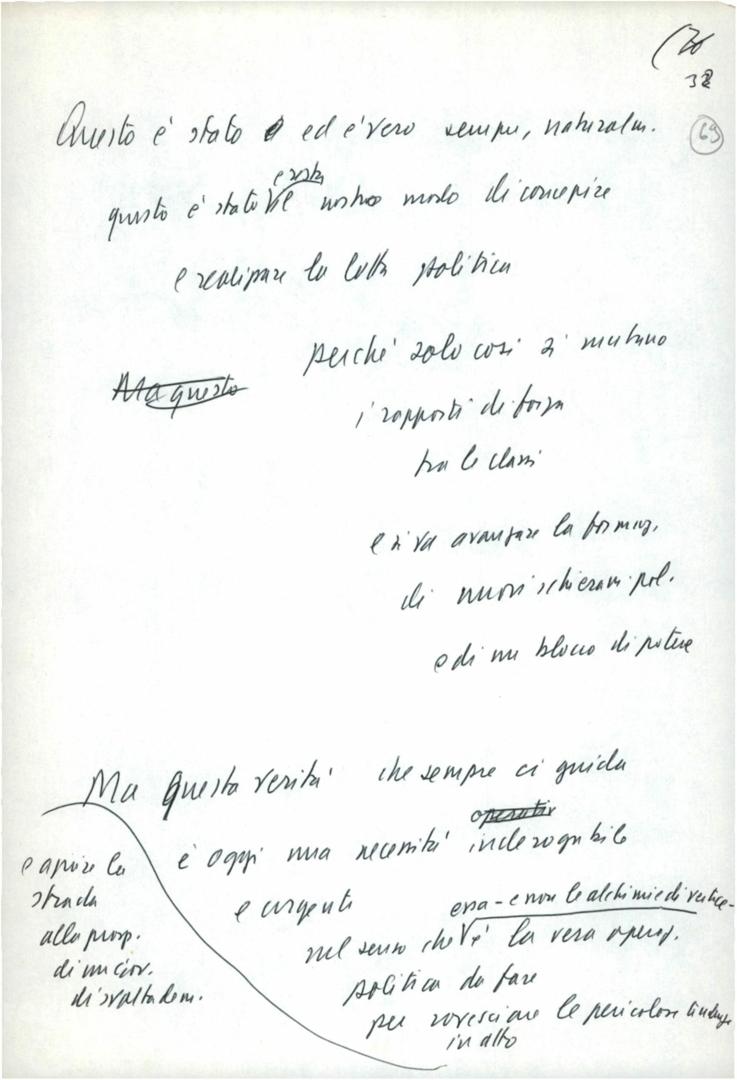 32
69
Questo è stato ed è vero sempre, naturalm.
e resta
questo è stato il nostro modo di concepire
e realizzare la lotta politica
perché solo così si mutano
Ma questo
i rapporti di forza
tra le classi
e si va avanzare la formaz.
di nuovi schieram. pol.
e di un blocco di potere
Ma questa verità che sempre ci guida
operativ
è oggi una necessità inderogabile
e urgente
essa - e non le alchimie di vertice -
nel senso che è la vera operaz.
politica da fare
per rovesciare le pericolose tendenze
in alto
e aprire la
strada
alla prosp.
di un gov.
di svolta dem.